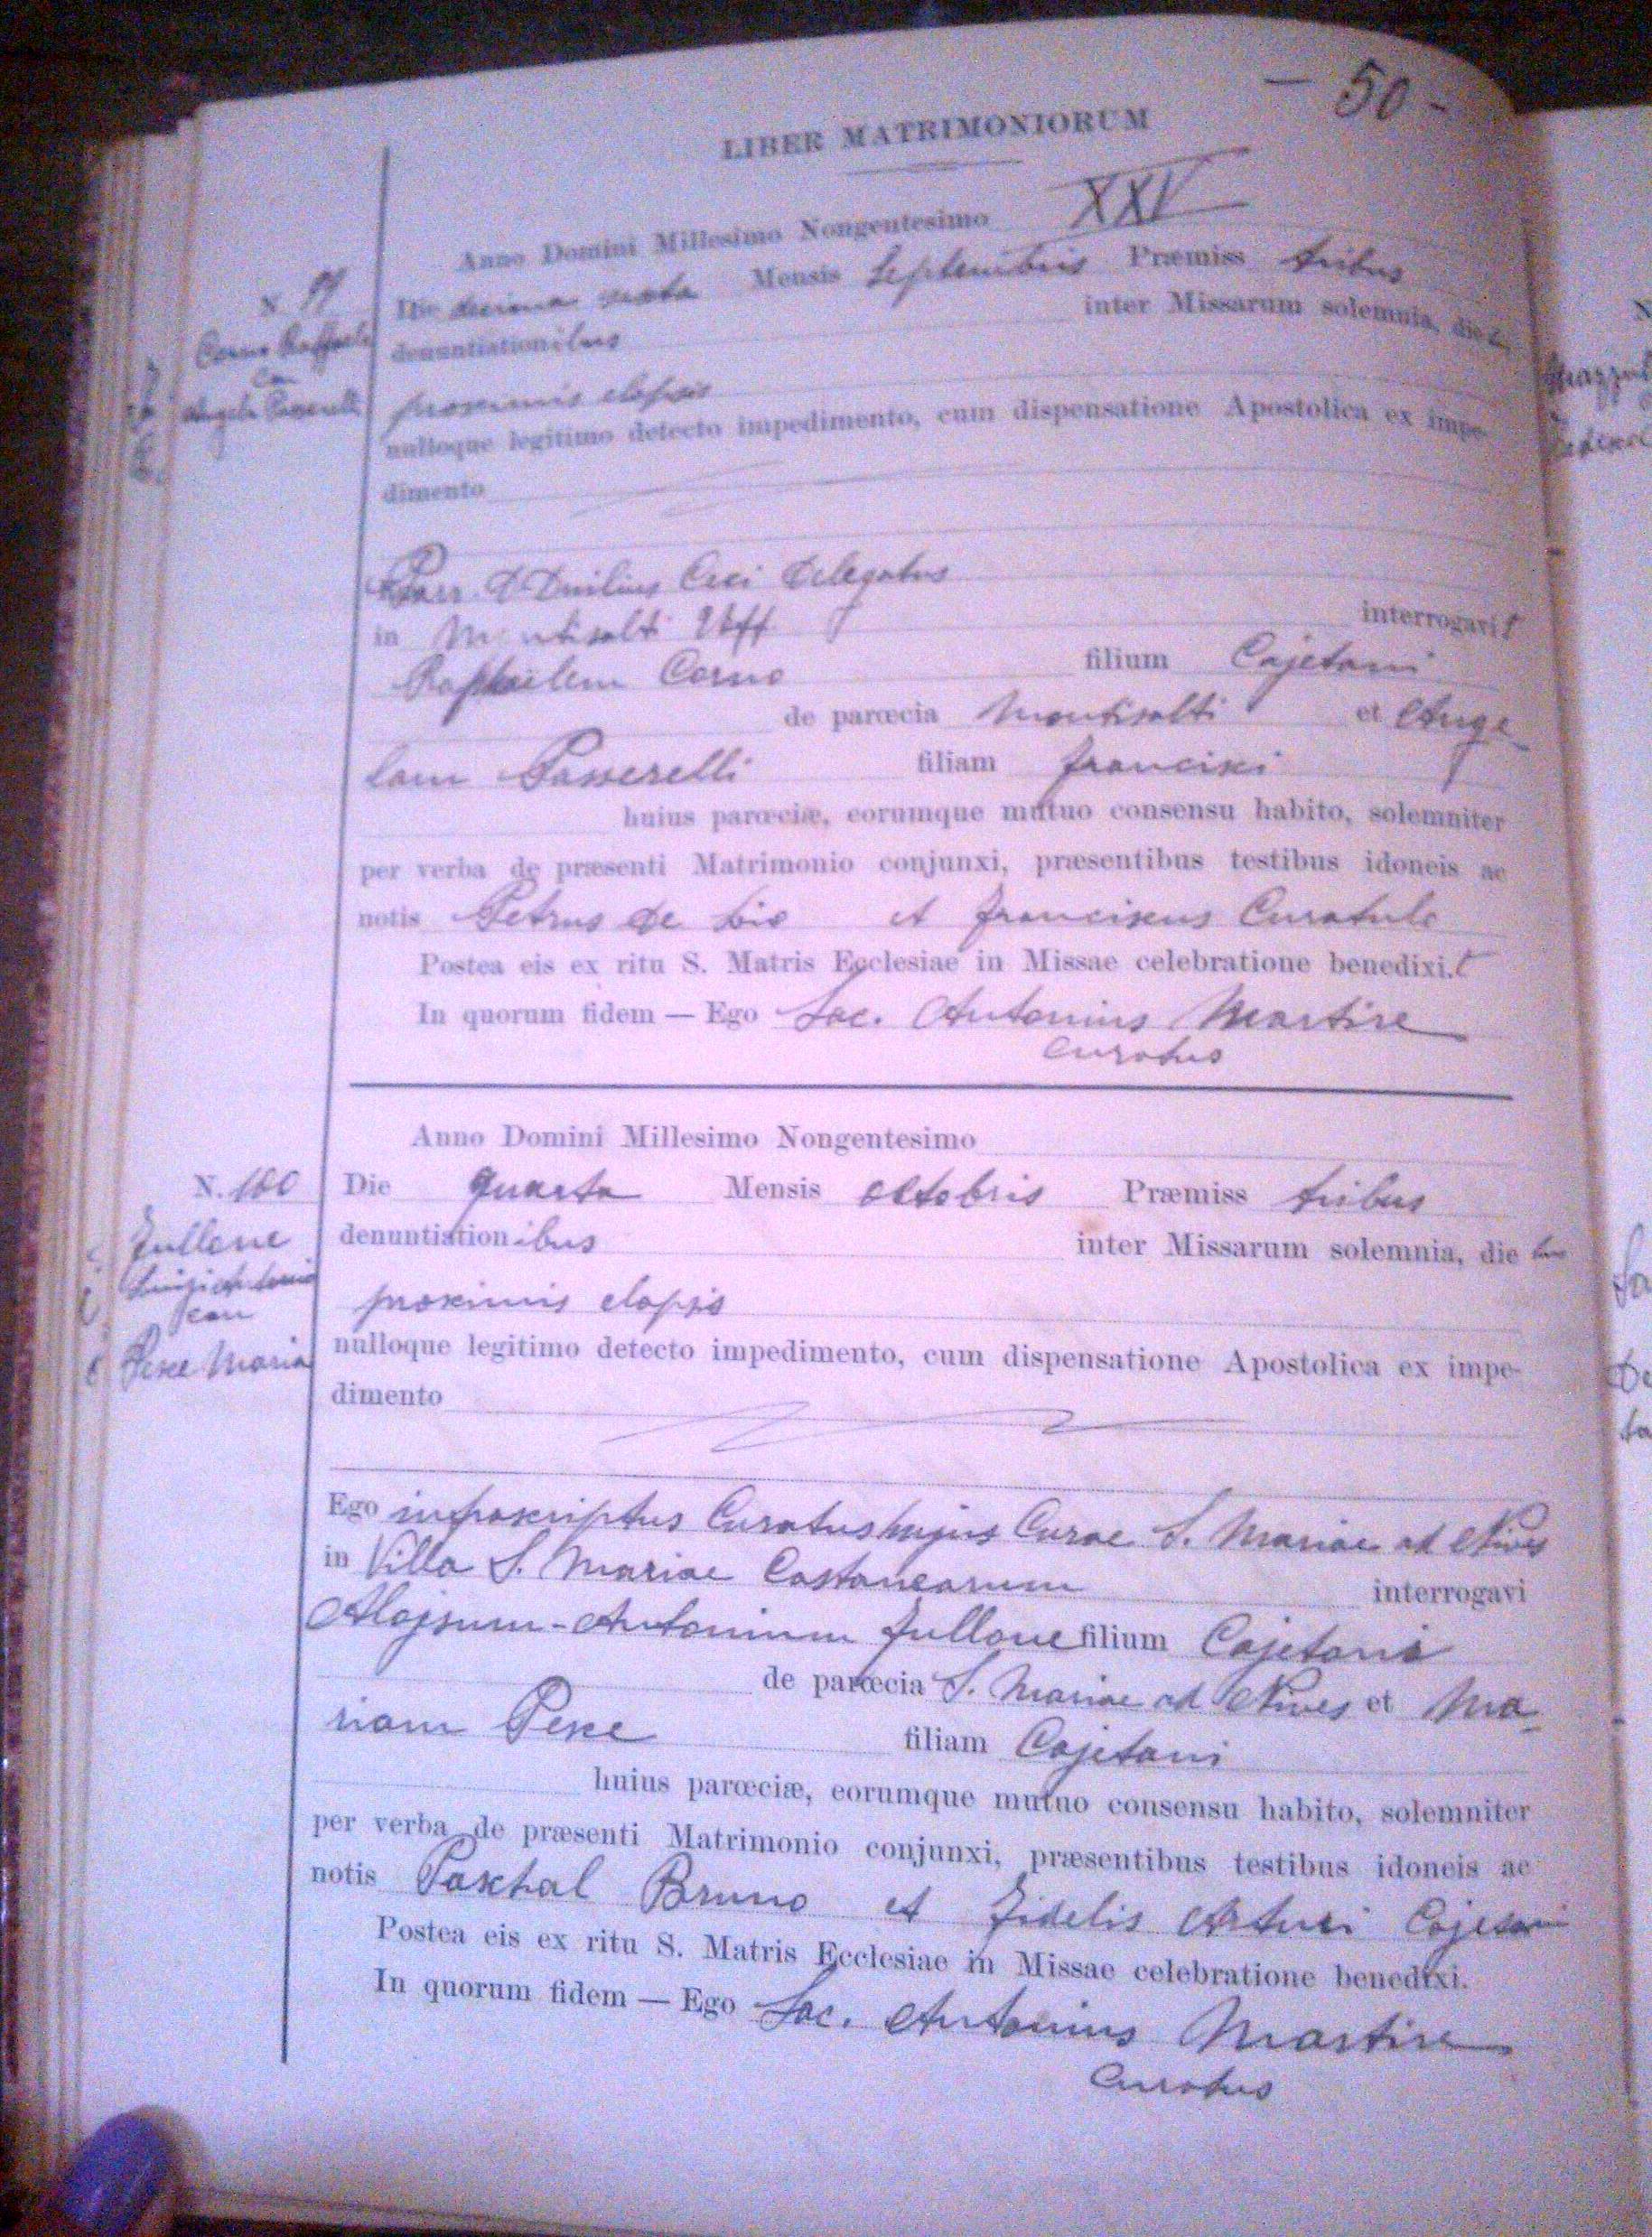 - 50 -
LIBER MATRIMONIORUM
Anno Domini Millesimo Nongentesimo XXV
N. 99
Die decima sexta Mensis Septembris Præmiss tribus
denuntiationibus inter Missarum solemnia, die
Corno Raffaele
con
Angela Passerelli
proximis elapsis
nulloque legitimo detecto impedimento, cum dispensatione Apostolica ex impe-
dimento
Parr. D. Duilius Ceci delegatus
in Montisalti Uff interrogavit
Raphaelem Corno filium Cajetani
de parœcia Montisalti et Ange
lam Passerelli filiam Francisci
huius parœciæ, eorumque mutuo consensu habito, solemniter
per verba de præsenti Matrimonio conjunxi, præsentibus testibus idoneis ac
notis Petrus de Bio et Franciscus Curatulo
Postea eis ex ritu S. Matris Ecclesiae in Missae celebratione benedixi.t
In quorum fidem — Ego Sac. Antonius Martire
Curatus
Anno Domini Millesimo Nongentesimo
N. 100
Die Quarta Mensis Octobris Præmiss tribus
denuntiationibus inter Missarum solemnia, die
Fullone
Luigi Antonio
con
Pesce Maria
proximis elapsis
nulloque legitimo detecto impedimento, cum dispensatione Apostolica ex impe-
dimento
Ego infrascriptus Curatus hujus Curae S. Mariae ad Nives
in Villa S. Mariae Castanearum interrogavi
Alojsum-Antonium Fullone filium Cajetani
de parœcia S. Mariae ad Nives et Ma-
riam Pesce filiam Cajetani
huius parœciæ, eorumque mutuo consensu habito, solemniter
per verba de præsenti Matrimonio conjunxi, præsentibus testibus idoneis ac
notis Paschal Bruno et Fidelis Arturi Cajetani
Postea eis ex ritu S. Matris Ecclesiae in Missae celebratione benedixi.
In quorum fidem — Ego Sac. Antonius Martire
Curatus